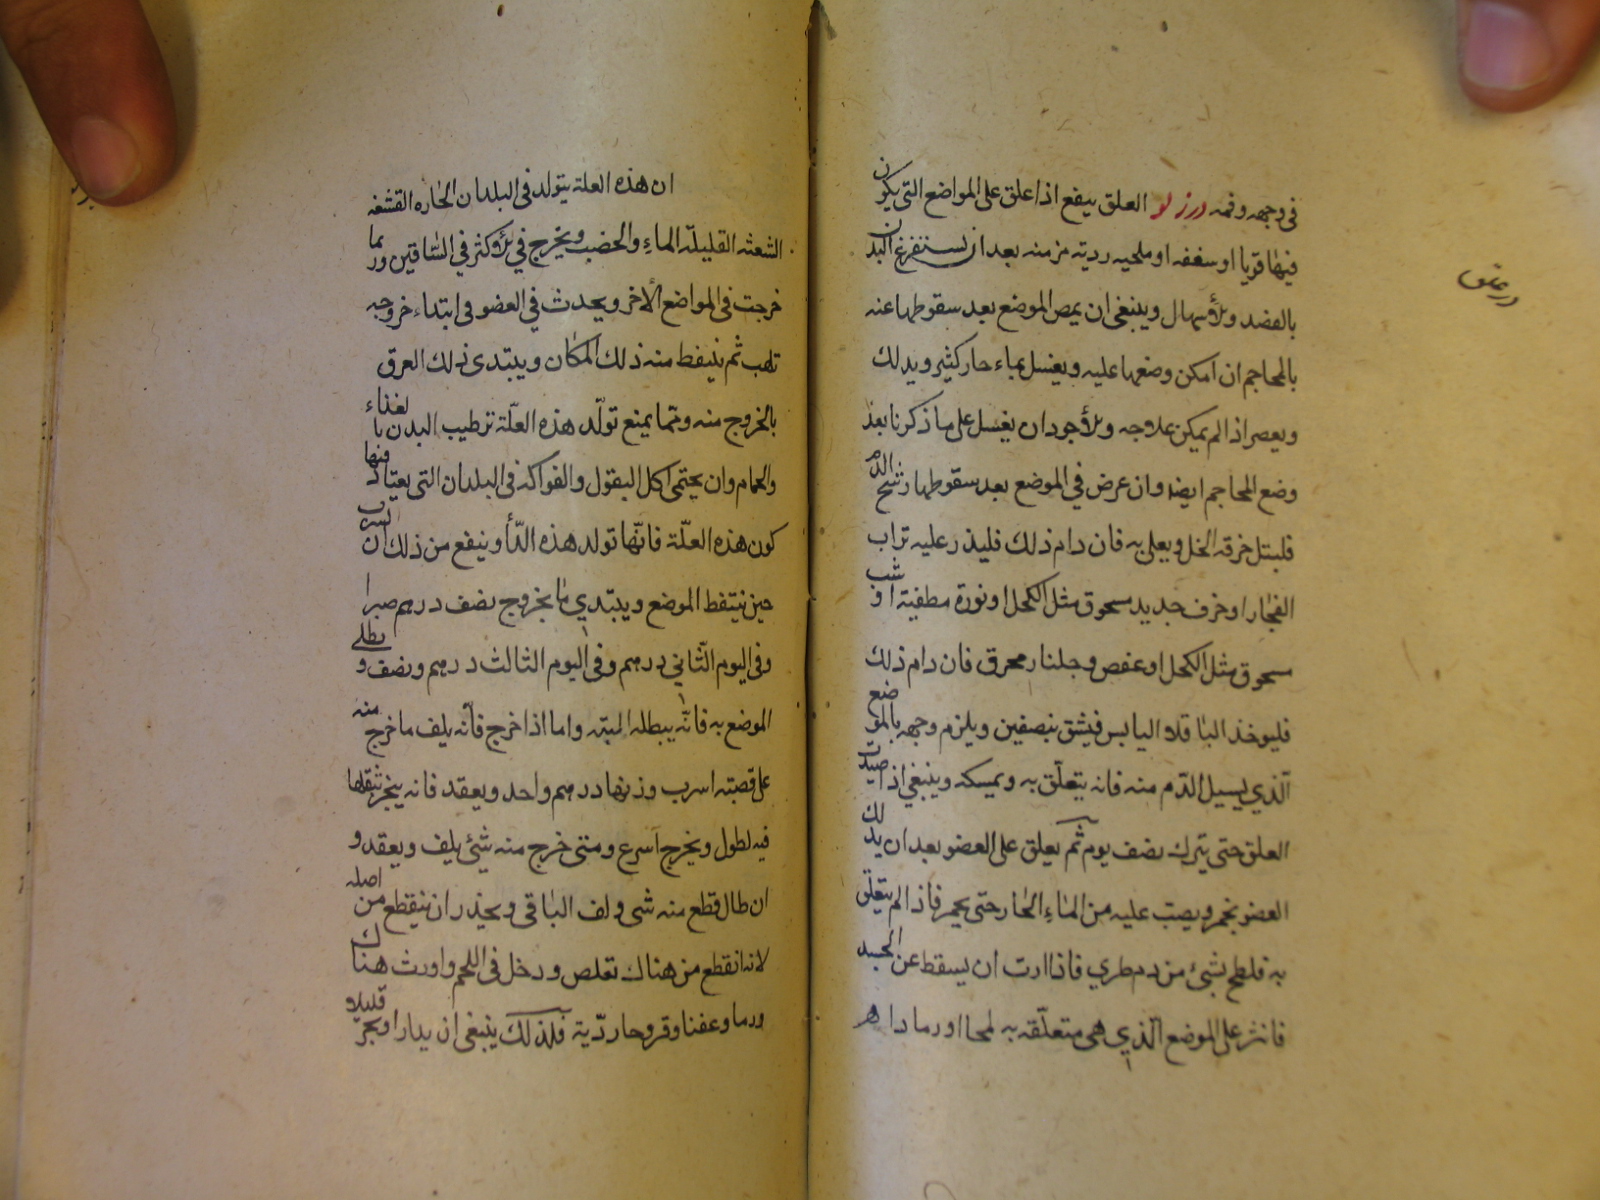 فى وجهه وفمه در زلو العلق ينفع اذا علق على المواضع التى يكون
فيها قوبا او سعفه او ملحيه رديه مزمنه بعد ان يستفرغ البدن
بالفصد والاسهال وينبغى ان يمص الموضع بعد سقوطها عنه
بالمحاجم ان امكن وضعها عليه ويغسل بماء حار كثير ويدلك
ويعصر اذا لم يمكن علاجه والاجود ان يغسل على ما ذكرنا بعد
وضع المحاجم ايضا وان عرض في الموضع بعد سقوطها رشح الدم
فلبتل خرقه الخل ويعلى به فان دام ذلك فليذر عليه تراب
الفخار او خزف جديد مسحوق مثل الكحل او نورة مطفية او شب
مسحوق مثل الكحل او عفص وجلنار محرق فان دام ذلك
فليوخذ الباقلا اليابس فيشق بنصفين ويلزم وجهه بالموضع
الّذي يسيل الدّم منه فانه يتعلّق به ويمسكه وينبغي اذا صيدت
العلق حتى يترك نصف يوم ثم يعلق على العضو بعد ان يدلك
العضو بخمر ويصب عليه من الماء الحار حتى يحمر فاذا لم يتعلّق
به فلطخ بشئ من دم طري فاذا اردت ان يسقط عن الجسد
فانثر على الموضع الّذي هى متعلّقه به ملحا او رمادا
در علق
ان هذه العلة يتولد فى البلدان الحاره القشفه
الشعثه القليلة الماء والخصب ويخرج في الاكثر في السّاقين وربما
خرجت فى المواضع الاخر ويحدث في العضو فى ابتداء خروجه
تلهب ثم يتنفط منه ذلك المكان ويبتدى ذلك العرق
بالخروج منه وممّا يمنع تولّد هذه العلّة ترطيب البدن بالغذاء
والحمام وان يحتمى اكل البقول والفواكه فى البلدان التى يعتاد فيها
كون هذه العلّة فانّها تولد هذه الدّا وينفع من ذلك ان يشرب
حين يتنفط الموضع ويبتدي بالخروج نصف درهم صبرا
وفى اليوم الثّاني درهم وفى اليوم الثالث درهم ونصف ويطلى
الموضع به فانّه يبطله البتّه واما اذا خرج فانّه يلف ما خرج منه
على قصبته اسرب وزنها درهم واحد ويعقد فانه ينجر بثقلها
فيه لطول ويخرج اسرع ومتى خرج منه شئ يلف ويعقد و
ان طال قطع منه شى ولف الباقى ويحذر ان ينقطع من اصله
لانه انقطع من هناك تقلص ودخل فى اللحم واورث هناك
ورما وعفنا وقروحا ردّية فلذلك ينبغى ان يدارا ويجر قليلا